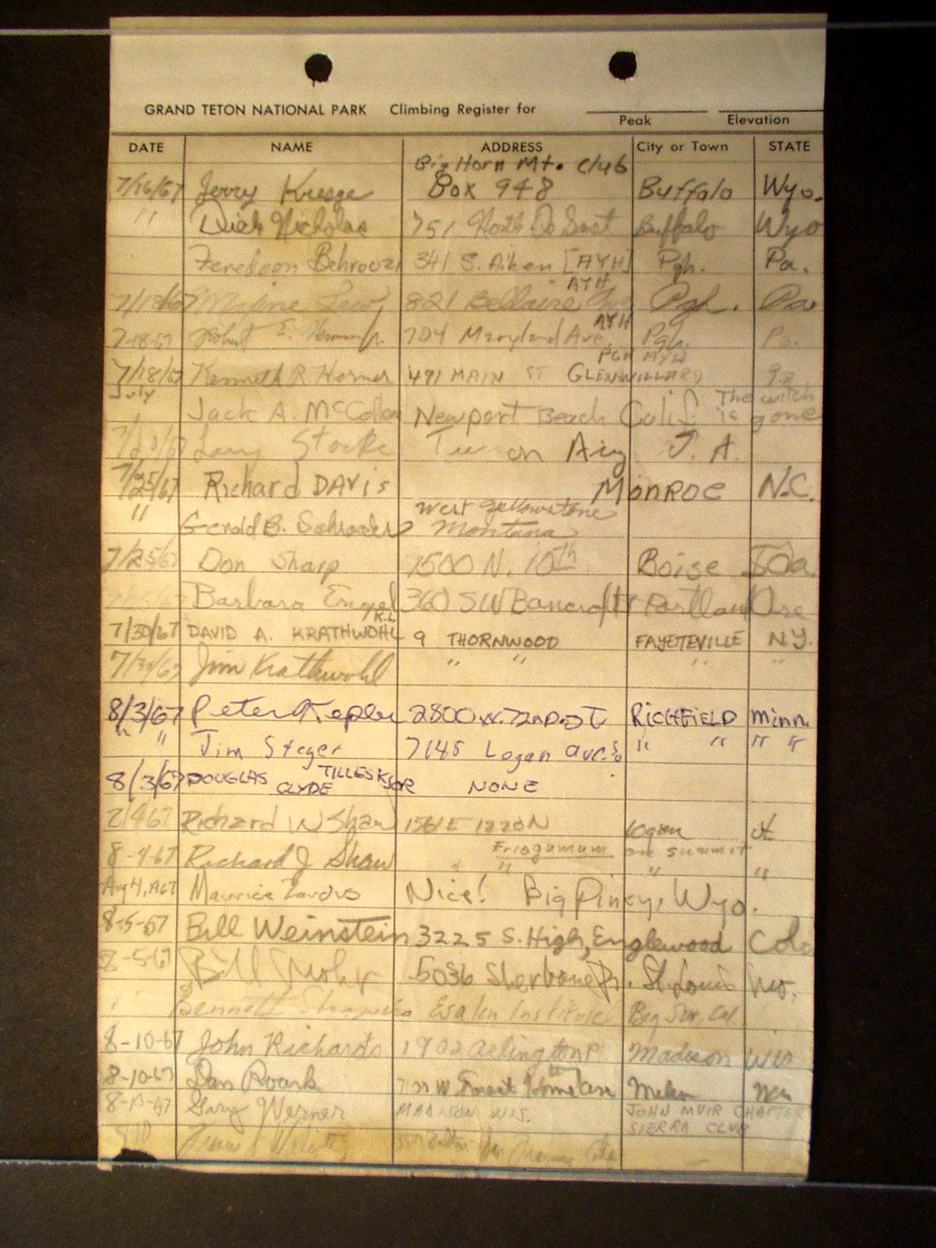 GRAND TETON NATIONAL PARK Climbing Register for
Peak Elevation
DATE NAME ADDRESS City or Town STATE
Big Horn Mt. Club
7/16/67 Jerry Kresge Box 948 Buffalo Wyo.
" Dick Nicholas 751 North Buffalo Wyo
Feredoon Behrouzi 341 S. Aiken [AYH] Pgh. Pa.
AYH
821 Bellaire Ave Pgh. Pa
AYH
7-18-67 Robert E. 704 Maryland Ave. Pgh. Pa.
PGH AYH
7/18/67 Kenneth R. Horner 491 MAIN ST GLENWILLARD
July The witch
Jack A. McColem Newport Beach Calif. is gone
Larry
7/25/67 Richard DAVIS MONROE N.C.
West Yellowstone
" Gerald B. Schroader Montana
7/25/67 Don Sharp 1500 N. 10th Boise Ida.
Barbara Engel 360 SW Bancroft Portland Ore
7/30/67 DAVID A. KRATHWOHL 9 THORNWOOD FAYETEVILLE N.Y.
7/30/67 Jim Krathwohl " " " "
8/3/67 Peter Kepler 2800 W. 72ND. ST RICHFIELD Minn.
" " Jim Steger 7145 Logan ave. So " " " "
8/3/67 DOUGLAS CLYDE NONE
Richard W Shaw 1561 E 1220 N logan ut
Eriogumum on summit
8-4-67 Richard J Shaw " " "
Aug 4, 1967 Maurice Nice! Big Piney, Wyo.
8-5-67 Bill Weinstein 3225 S. High, Englewood Colo
8-5-67 Bill Mohr 5036 Sherbone Dr. St. Louis Mo.
Bennett Shapiro Esalen Institute Big Sur, Cal.
8-10-67 John Richards 1902 arlington Pl Madison Wis
8-10-67 Dan Roark W. Forest Home ave
8-10-67 Gary Werner MADISON WIS. JOHN MUIR CHAPTER
SIERRA CLUB
8/10